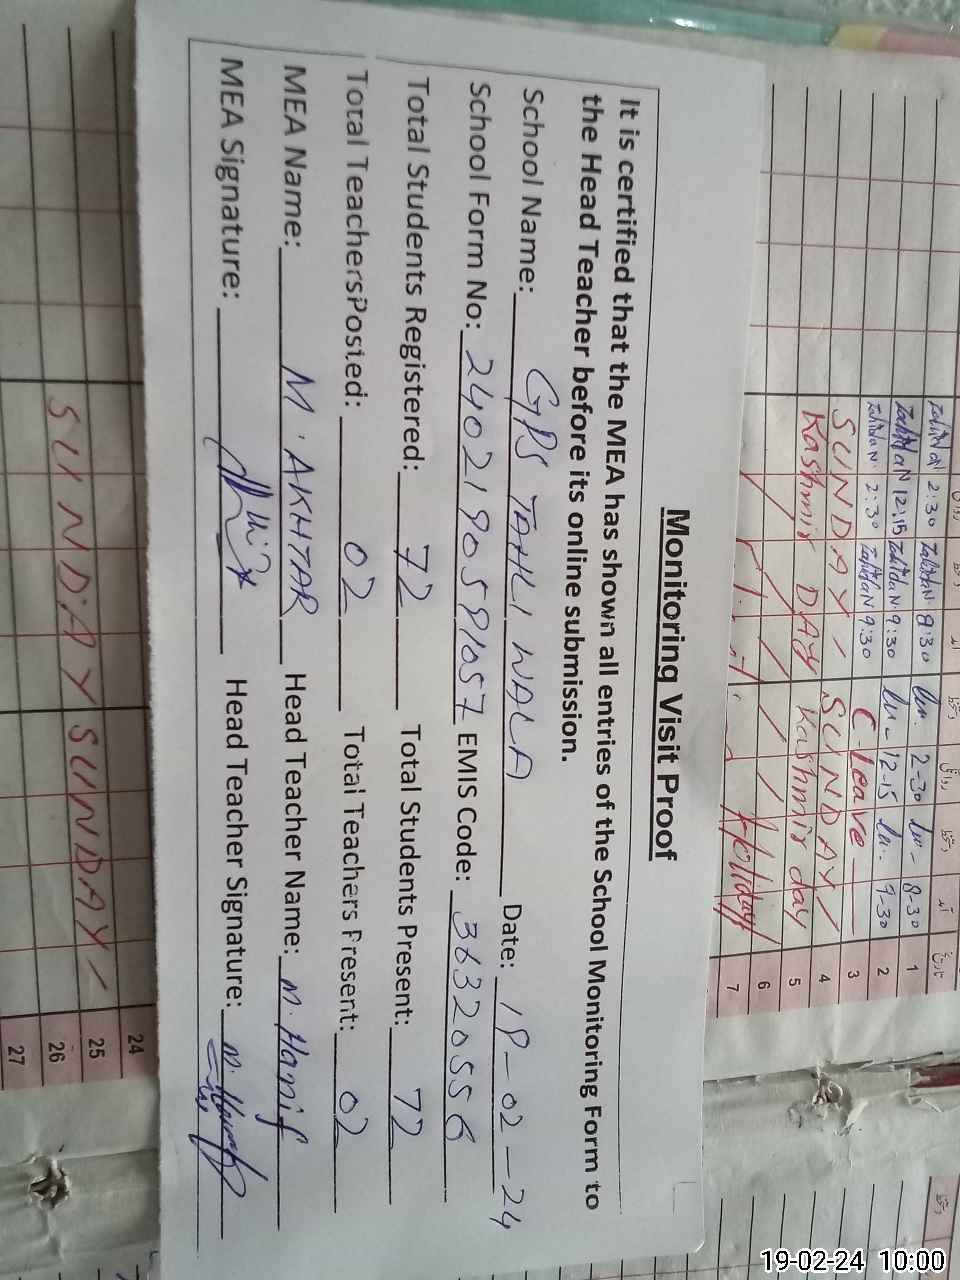 Monitoring Visit Proof
It is certified that the MEA has shown all entries of the School Monitoring Form to
the Head Teacher before its online submission.
School Name: GPS TAHLI WALA Date: 19-02-24
School Form No: 2402190591057 EMIS Code: 36320556
Total Students Registered: 72 Total Students Present: 72
Total TeachersPosted: 02 Total Teachers Present: 02
MEA Name: M. AKHTAR Head Teacher Name: M. Hanif
MEA Signature: Head Teacher Signature: M. Hanif
تاریخ
2:30 8:30 2-30 8-30 1
12:15 9:30 12-15 9-30 2
2:30 9:30 C Leave 3
SUNDAY SUNDAY 4
Kashmir DAy Kashmir day 5
6
Holiday 7
24
25
SUNDAY SUNDAY 26
27
19-02-24 10:00